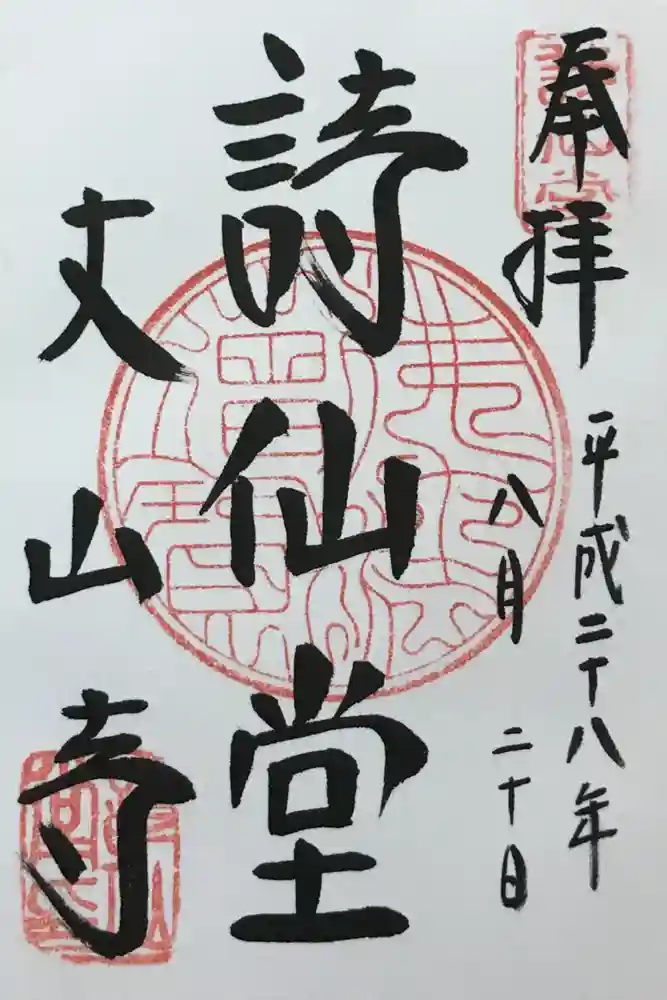 奉拝
平成二十八年
八月二十日
詩仙堂
丈山寺